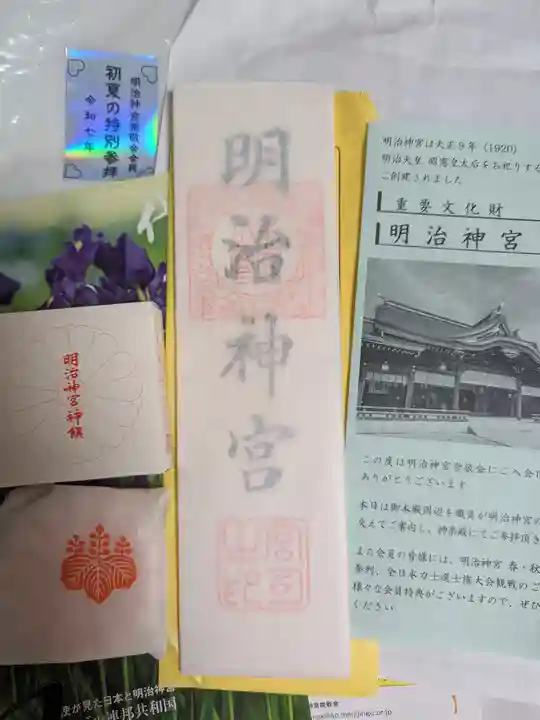 明治神宮崇敬会会員
初夏の特別参拝
令和七年
明治神宮
明治神宮神饌
明治神宮は大正９年（1920）
明治天皇 昭憲皇太后をお祀りする
ご創建されました
重要文化財
明治神宮
この度は明治神宮崇敬会にご入会
ありがとうございます
本日は御本殿周辺を職員が明治神宮の
交えてご案内し、神楽殿にてご参拝頂き
また会員の皆様には、明治神宮 春・秋
参列、全日本力士選士権大会観戦のご
様々な会員特典がございますので、ぜひ
ください
度が見た日本と明治神宮
連邦共和国